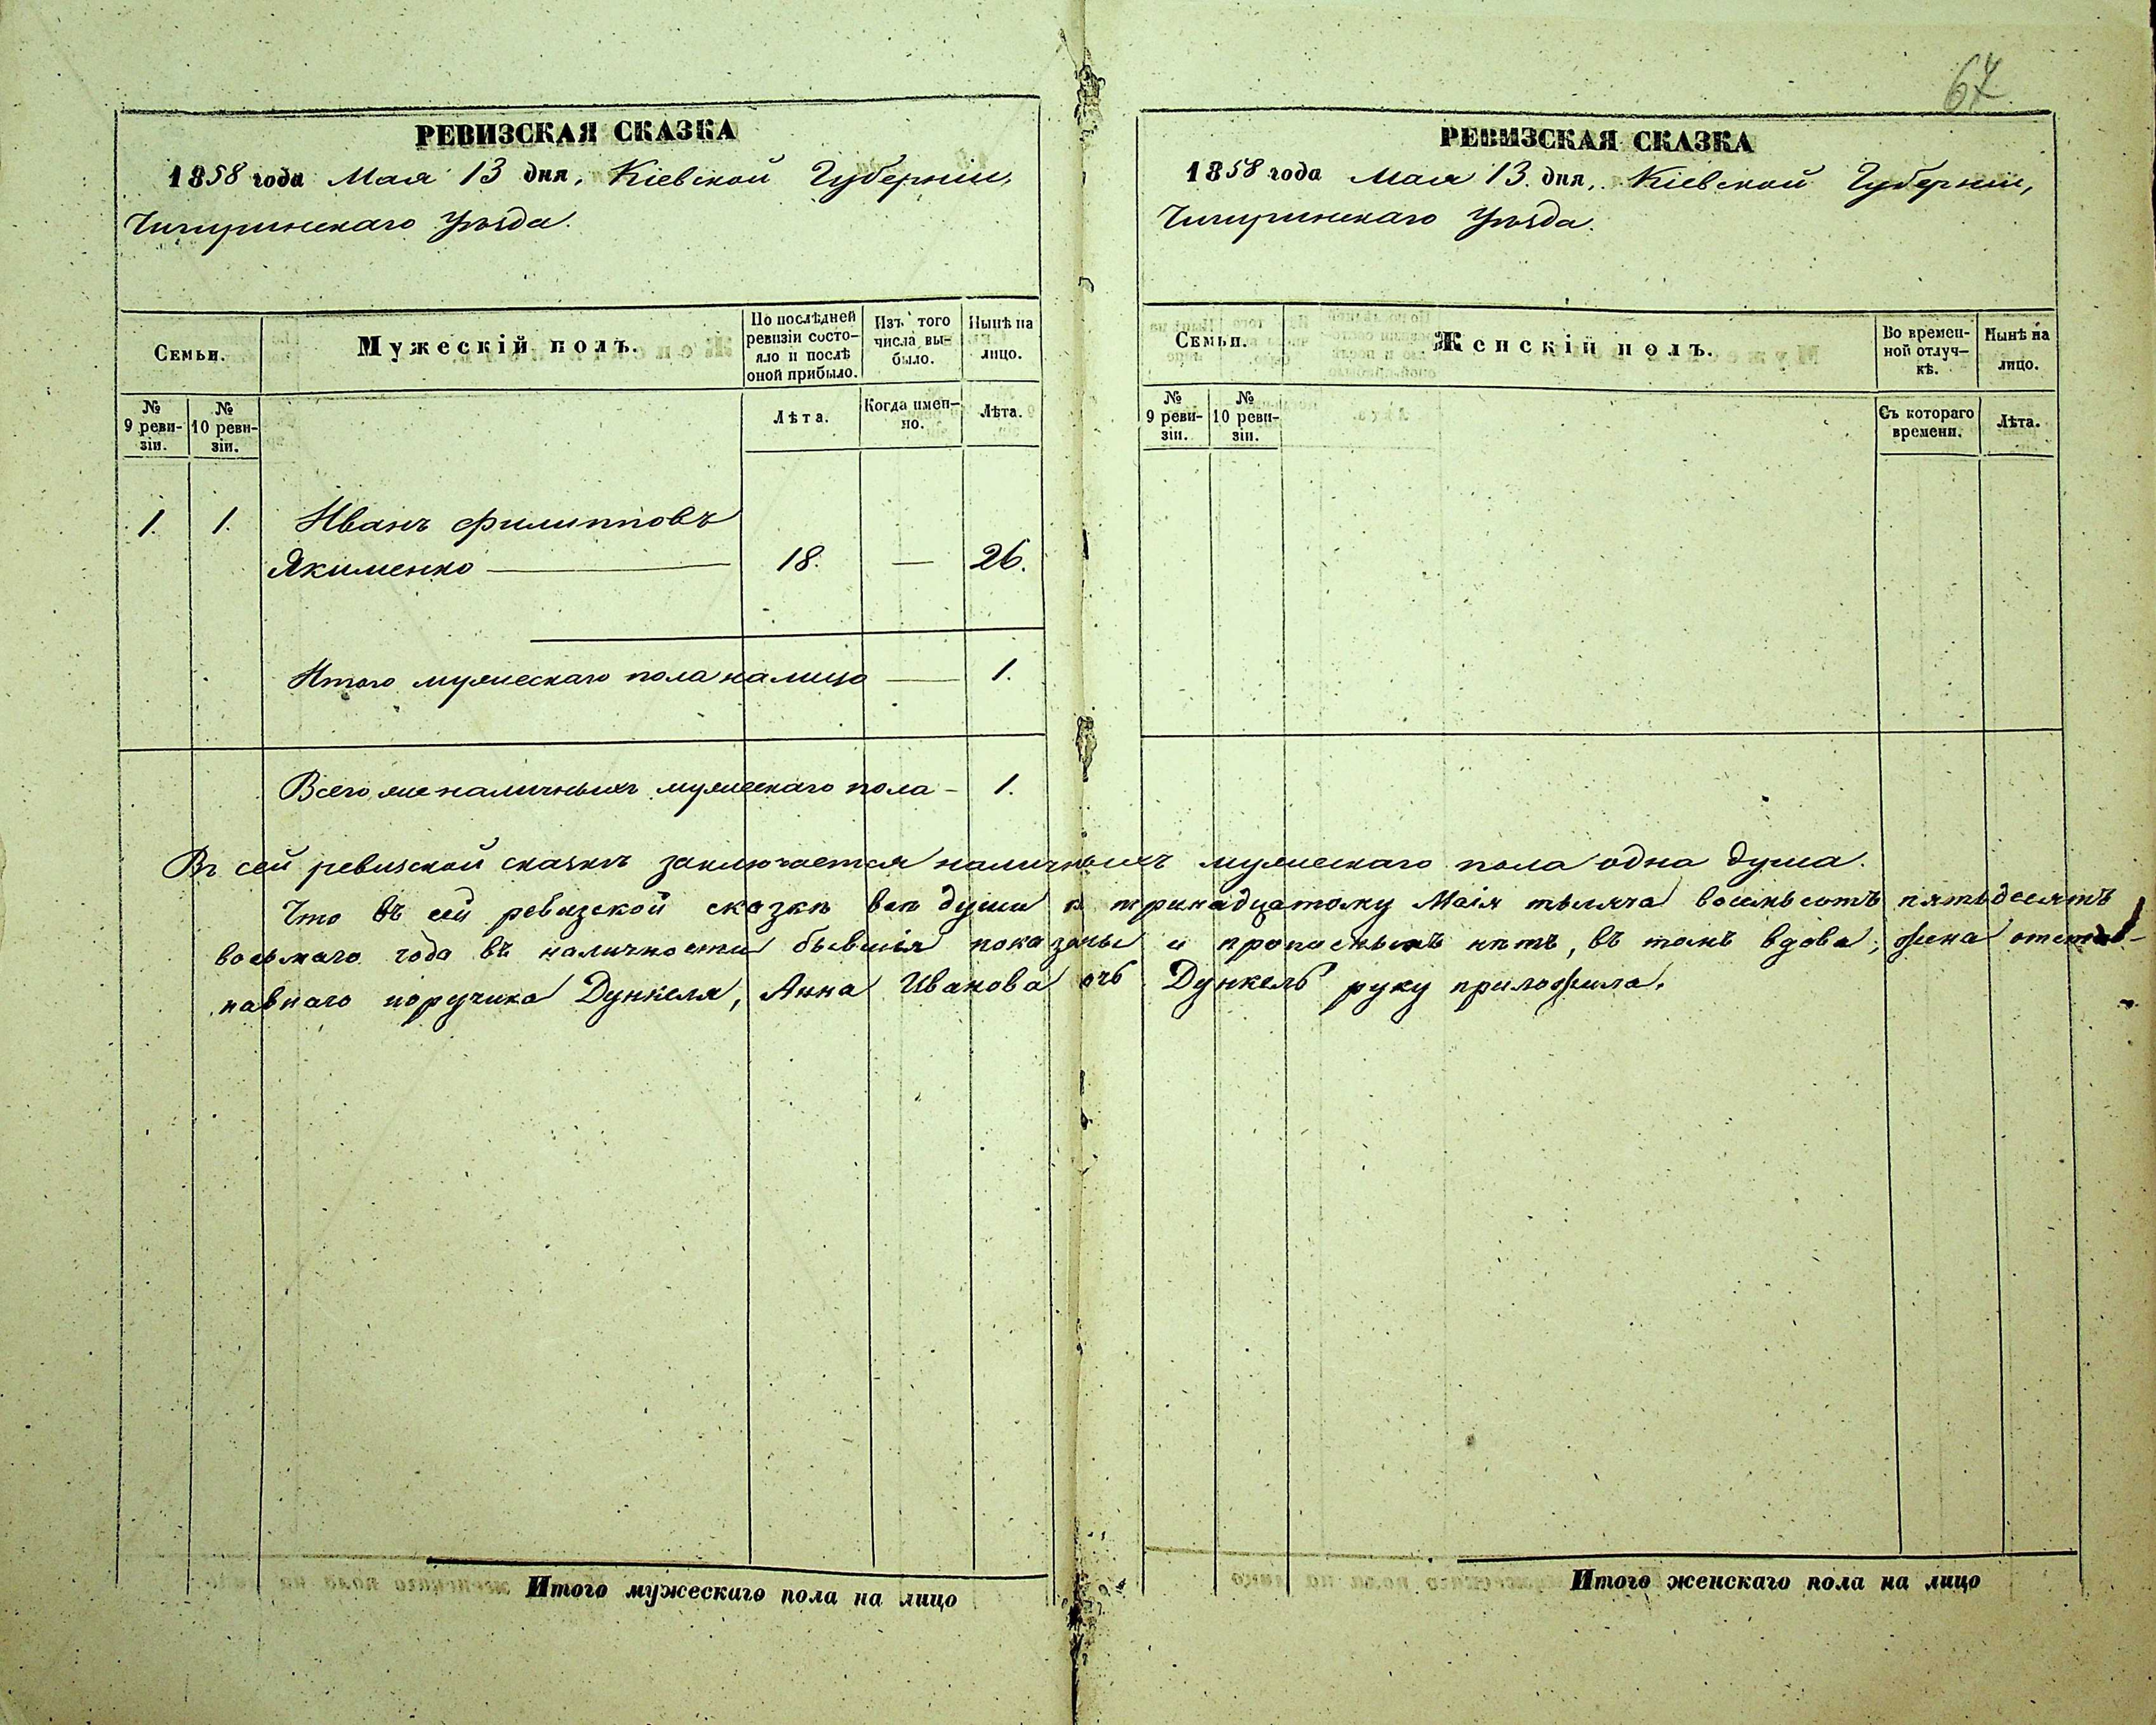 67
РЕВИЗСКАЯ СКАЗКА
1858 года Мая 13 дня, Кіевской Губерніи,
Чигиринскаго Уѣзда.
Семьи.
Мужескій полъ.
По послѣдней ревизіи состояло и послѣ оной прибыло.
Изъ того числа вы-было.
Нынѣ на лицо.
№ 9 реви-зіи.
№ 10 реви-зіи.
Лѣта.
Когда имен-но.
Лѣта.
1. 1. Иванъ Филипповъ
Якименко — 18. — 26.
Итого мужескаго пола налицо — 1.
Всего же наличныхъ мужескаго пола - 1.
РЕВИЗСКАЯ СКАЗКА
1858 года Мая 13. дня, Кіевской Губерніи,
Чигиринскаго Уѣзда.
Семьи.
Женскій полъ.
Во времен-ной отлуч-кѣ.
Нынѣ на лицо.
№ 9 реви-зіи.
№ 10 реви-зіи.
Съ котораго времени.
Лѣта.
Въ сей ревизской сказкѣ заключается наличныхъ мужескаго пола одна душа.
Что въ сей ревизской сказкѣ всѣ души к тринадцатому Маія тысяча восемьсотъ пятьдесятъ
восьмаго года въ наличности бывшія показаны и прописныхъ нѣтъ, въ томъ вдова, жена отстав-
наго поручика Дункеля, Анна Иванова дочь Дункель руку приложила.
Итого мужескаго пола на лицо
Итого женскаго пола на лицо